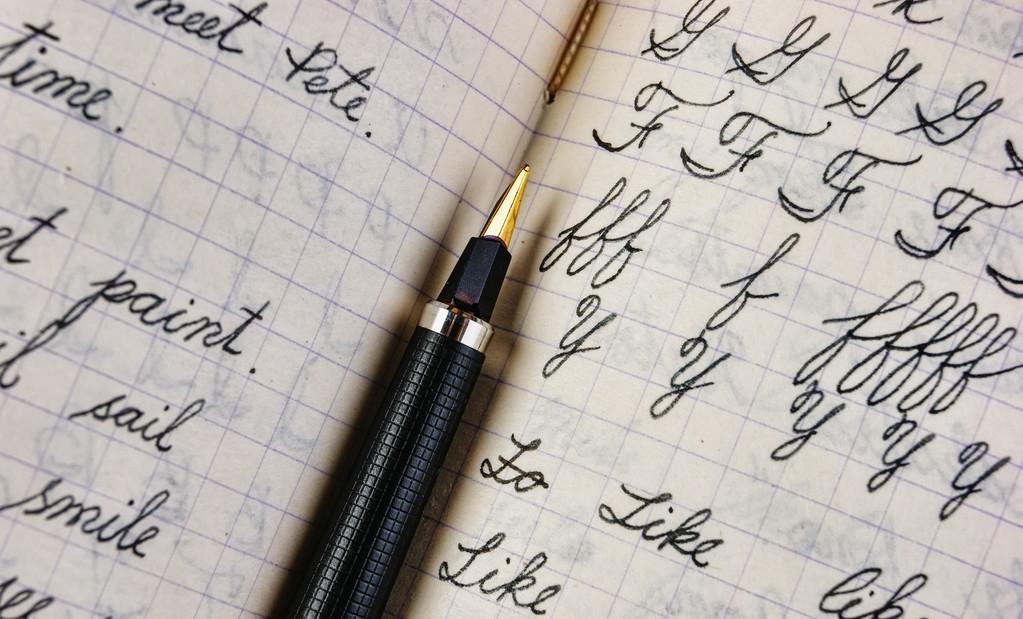 meet Pete.
time.
et paint.
il sail
smile
G G G G
F F F F
fff f fffff
Y Y Y Y Y
Lo Like
Like